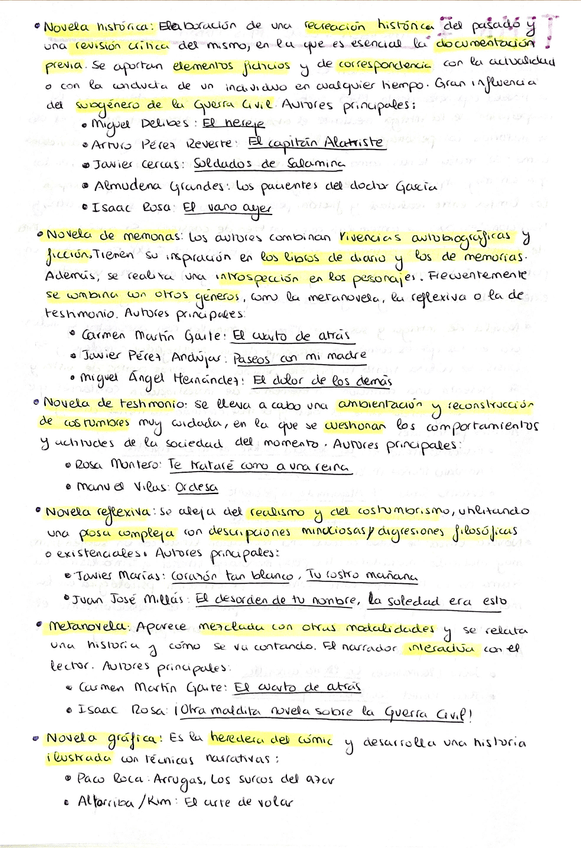 • Novela histórica: Elaboración de una recreación histórica del pasado y
una revisión crítica del mismo, en la que es esencial la documentación
previa. Se aportan elementos ficticios y de correspondencia con la actualidad
o con la conducta de un individuo en cualquier tiempo. Gran influencia
del subgénero de la Guerra Civil. Autores principales:
• Miguel Delibes: El hereje
• Arturo Pérez Reverte: El capitán Alatriste
• Javier Cercas: Soldados de Salamina
• Almudena Grandes: Los pacientes del doctor García
• Isaac Rosa: El vano ayer
• Novela de memorias: Los autores combinan vivencias autobiográficas y
ficción. Tienen su inspiración en los libros de diario y los de memorias.
Además, se realiza una introspección en los personajes. Frecuentemente
se combina con otros géneros, como la metanovela, la reflexiva o la de
testimonio. Autores principales:
• Carmen Martín Gaite: El cuarto de atrás
• Javier Pérez Andújar: Paseos con mi madre
• Miguel Ángel Hernández: El dolor de los demás
• Novela de testimonio: Se lleva a cabo una ambientación y reconstrucción
de costumbres muy cuidada, en la que se cuestionan los comportamientos
y actitudes de la sociedad del momento. Autores principales:
• Rosa Montero: Te trataré como a una reina
• Manuel Vilas: Ordesa
• Novela reflexiva: se aleja del realismo y del costumbrismo, utilizando
una prosa compleja con descripciones minuciosas y digresiones filosóficas
o existenciales. Autores principales:
• Javier Marías: Corazón tan blanco, Tu rostro mañana
• Juan José Millás: El desorden de tu nombre, la soledad era esto
• Metanovela: Aparece mezclada con otras modalidades y se relata
una historia y cómo se va contando. El narrador interactúa con el
lector. Autores principales:
• Carmen Martín Gaite: El cuarto de atrás
• Isaac Rosa: ¡Otra maldita novela sobre la Guerra Civil!
• Novela gráfica: Es la heredera del cómic y desarrolla una historia
ilustrada con técnicas narrativas:
• Paco Roca: Arrugas, Los surcos del azar
• Altarriba/Kim: El arte de volar